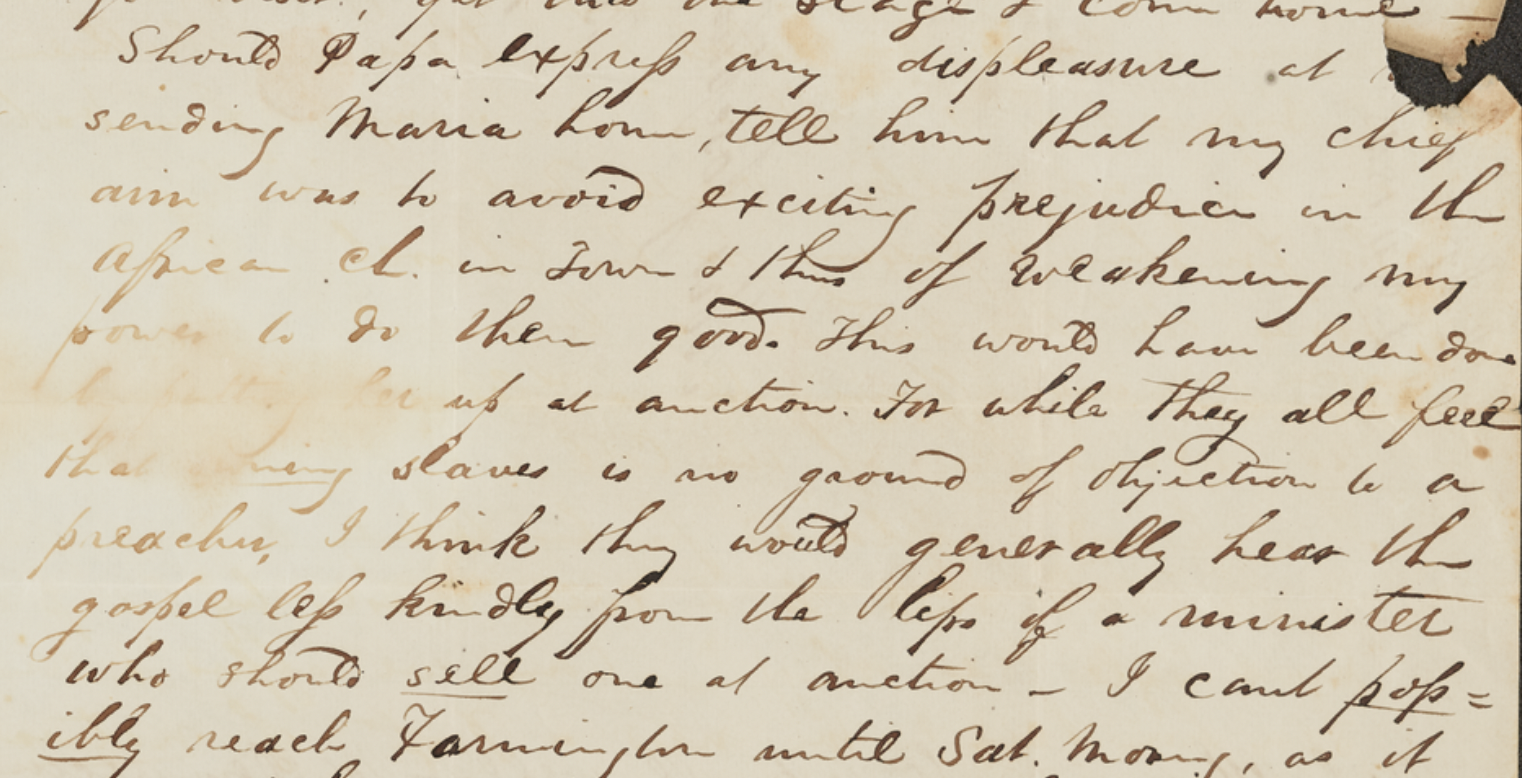 get into the stage & come home —
Should Papa express any displeasure at
sending Maria home, tell him that my chief
aim was to avoid exciting prejudice in the
African Ch. in Town & thus of weakening my
power to do them good. This would have been done
by putting her up at auction. For while they all feel
that owning slaves is no ground of objection to a
preacher, I think they would generally hear the
gospel less kindly from the lips of a minister
who should sell one at auction – I cant poss=
ibly reach Farmington until Sat. Morng, as it